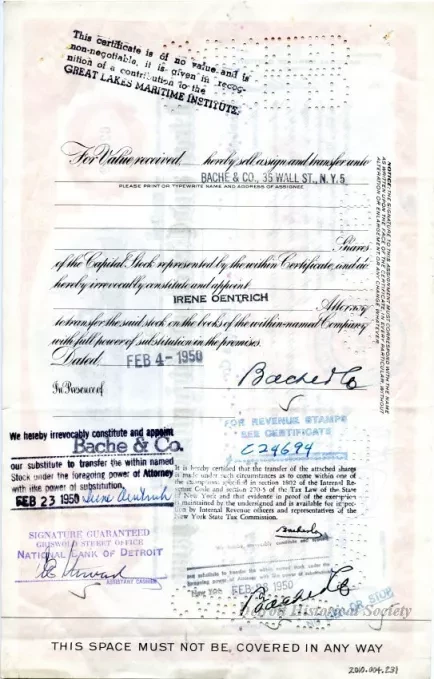 This certificate is of no value and is
non-negotiable, it is given in recog-
nition of a contribution to the
GREAT LAKES MARITIME INSTITUTE.
For Value received, hereby sell assign and transfer unto
BACHE & CO., 35 WALL ST., N.Y. 5
PLEASE PRINT OR TYPEWRITE NAME AND ADDRESS OF ASSIGNEE
Shares
of the Capital Stock represented by the within Certificate, and do
hereby irrevocably constitute and appoint
IRENE OENTRICH
Attorney
to transfer the said stock on the books of the within-named Company
with full power of substitution in the premises.
Dated FEB 4 - 1950
In Presence of
Bache & Co
NOTICE: THE SIGNATURE TO THIS ASSIGNMENT MUST CORRESPOND WITH THE NAME
AS WRITTEN UPON THE FACE OF THE CERTIFICATE, IN EVERY PARTICULAR, WITHOUT
ALTERATION OR ENLARGEMENT OR ANY CHANGE WHATEVER.
We hereby irrevocably constitute and appoint
Bache & Co.
our substitute to transfer the within named
Stock under the foregoing power of Attorney
with like power of substitution.
FEB 23 1950 Irene Oentrich
SIGNATURE GUARANTEED
GRISWOLD STREET OFFICE
NATIONAL BANK OF DETROIT
ASSISTANT CASHIER
FOR REVENUE STAMPS
SEE CERTIFICATE
C24694
It is hereby certified that the transfer of the attached shares
is made under such circumstances as to come within one of
the exemptions specified in section 1802 of the Internal Re-
venue Code and section 270-5 of the Tax Law of the State
of New York and that evidence in proof of the exemption
is maintained by the undersigned and is available for inspec-
tion by Internal Revenue officers and representatives of the
New York State Tax Commission.
Bache & Co
our substitute to transfer the within named stock under the
foregoing power of Attorney with like power of substitution
FEB 28 1950
Bache & Co
Historical Society
THIS SPACE MUST NOT BE COVERED IN ANY WAY
2010.004.231